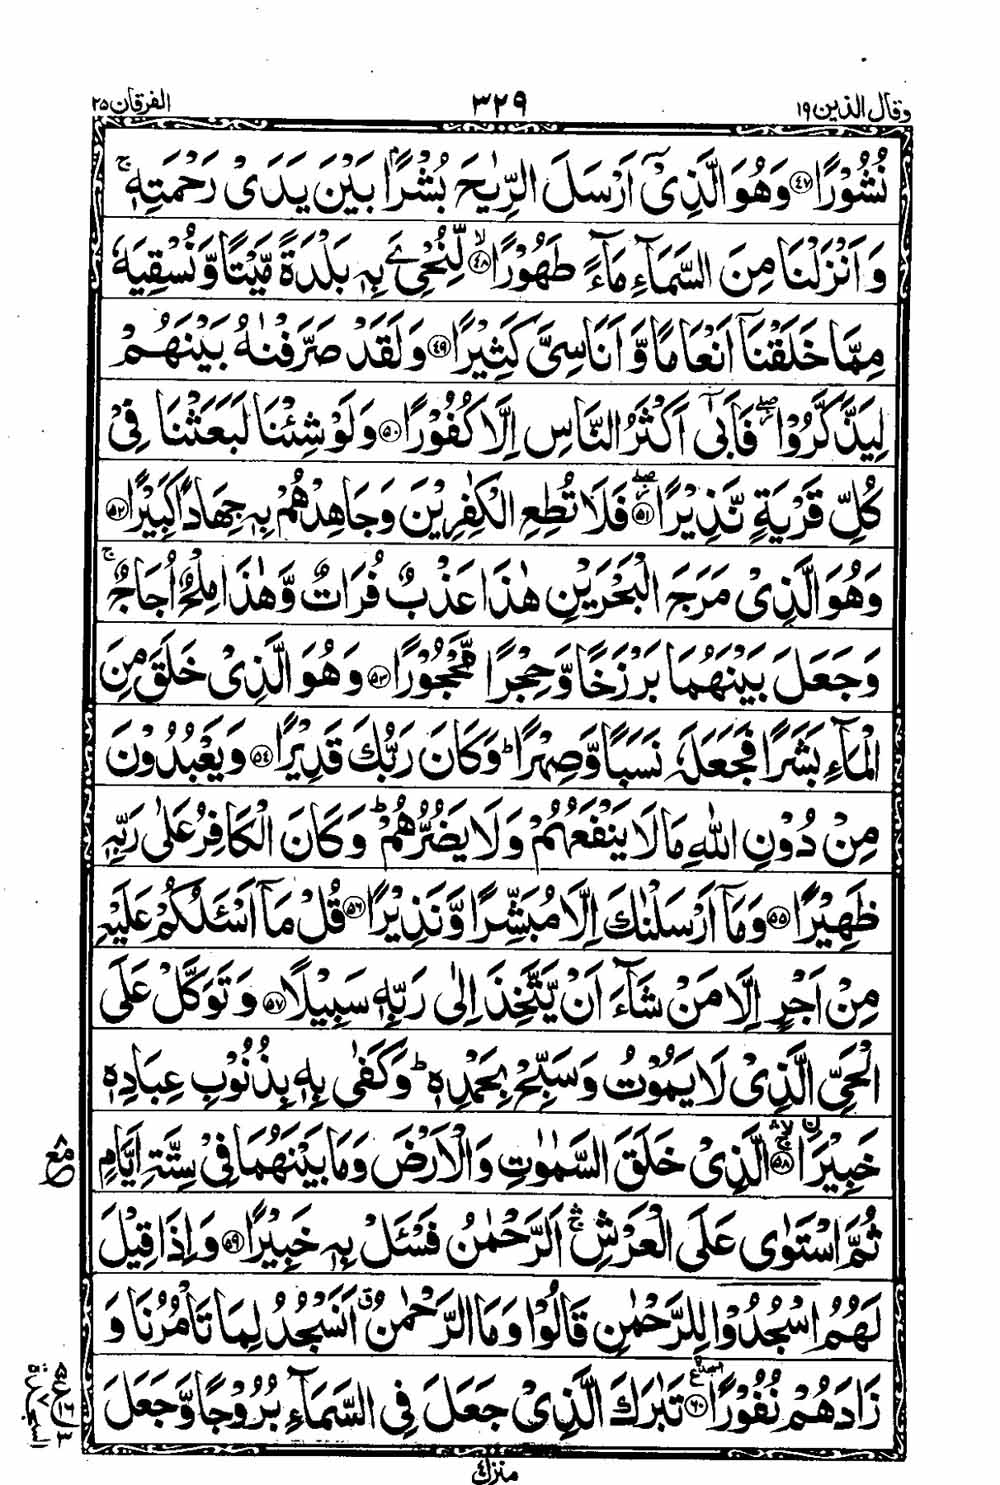 وقال الذين ١٩
٣٢٩
الفرقان ٢٥
نُشُوْرًا ﴿٤٧﴾ وَهُوَ الَّذِيْۤ اَرْسَلَ الرِّيٰحَ بُشْرًۢا بَيْنَ يَدَيْ رَحْمَتِهٖ ۚ
وَاَنْزَلْنَا مِنَ السَّمَآءِ مَآءً طَهُوْرًا ﴿٤٨﴾ۙ لِّنُحْيِۦَ بِهٖ بَلْدَةً مَّيْتًا وَّنُسْقِيَهٗ
مِمَّا خَلَقْنَاۤ اَنْعَامًا وَّاَنَاسِيَّ كَثِيْرًا ﴿٤٩﴾ وَلَقَدْ صَرَّفْنٰهُ بَيْنَهُمْ
لِيَذَّكَّرُوْا ۖ فَاَبٰۤى اَكْثَرُ النَّاسِ اِلَّا كُفُوْرًا ﴿٥٠﴾ وَلَوْ شِئْنَا لَبَعَثْنَا فِيْ
كُلِّ قَرْيَةٍ نَّذِيْرًا ﴿٥١﴾ۖ فَلَا تُطِعِ الْكٰفِرِيْنَ وَجَاهِدْهُمْ بِهٖ جِهَادًا كَبِيْرًا ﴿٥٢﴾
وَهُوَ الَّذِيْ مَرَجَ الْبَحْرَيْنِ هٰذَا عَذْبٌ فُرَاتٌ وَّهٰذَا مِلْحٌ اُجَاجٌ ۚ
وَجَعَلَ بَيْنَهُمَا بَرْزَخًا وَّحِجْرًا مَّحْجُوْرًا ﴿٥٣﴾ وَهُوَ الَّذِيْ خَلَقَ مِنَ
الْمَآءِ بَشَرًا فَجَعَلَهٗ نَسَبًا وَّصِهْرًا ؕ وَكَانَ رَبُّكَ قَدِيْرًا ﴿٥٤﴾ وَيَعْبُدُوْنَ
مِنْ دُوْنِ اللّٰهِ مَا لَا يَنْفَعُهُمْ وَلَا يَضُرُّهُمْ ؕ وَكَانَ الْكَافِرُ عَلٰى رَبِّهٖ
ظَهِيْرًا ﴿٥٥﴾ وَمَاۤ اَرْسَلْنٰكَ اِلَّا مُبَشِّرًا وَّنَذِيْرًا ﴿٥٦﴾ قُلْ مَاۤ اَسْـَٔلُكُمْ عَلَيْهِ
مِنْ اَجْرٍ اِلَّا مَنْ شَآءَ اَنْ يَّتَّخِذَ اِلٰى رَبِّهٖ سَبِيْلًا ﴿٥٧﴾ وَتَوَكَّلْ عَلَى
الْحَيِّ الَّذِيْ لَا يَمُوْتُ وَسَبِّحْ بِحَمْدِهٖ ؕ وَكَفٰى بِهٖ بِذُنُوْبِ عِبَادِهٖ
خَبِيْرَا ﴿٥٨﴾ الَّذِيْ خَلَقَ السَّمٰوٰتِ وَالْاَرْضَ وَمَا بَيْنَهُمَا فِيْ سِتَّةِ اَيَّامٍ
ثُمَّ اسْتَوٰى عَلَى الْعَرْشِ ۛ اَلرَّحْمٰنُ فَسْـَٔلْ بِهٖ خَبِيْرًا ﴿٥٩﴾ وَاِذَا قِيْلَ
لَهُمُ اسْجُدُوْا لِلرَّحْمٰنِ قَالُوْا وَمَا الرَّحْمٰنُ ۗ اَنَسْجُدُ لِمَا تَاْمُرُنَا وَ
زَادَهُمْ نُفُوْرًا ﴿٦٠﴾ تَبٰرَكَ الَّذِيْ جَعَلَ فِي السَّمَآءِ بُرُوْجًا وَّجَعَلَ
منزل ٤